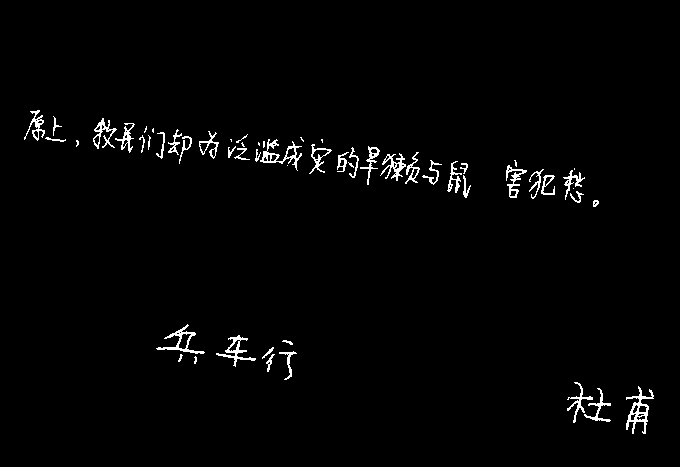 原上，牧民们却为泛滥成灾的旱獭与鼠 害犯愁。
兵车行
杜甫